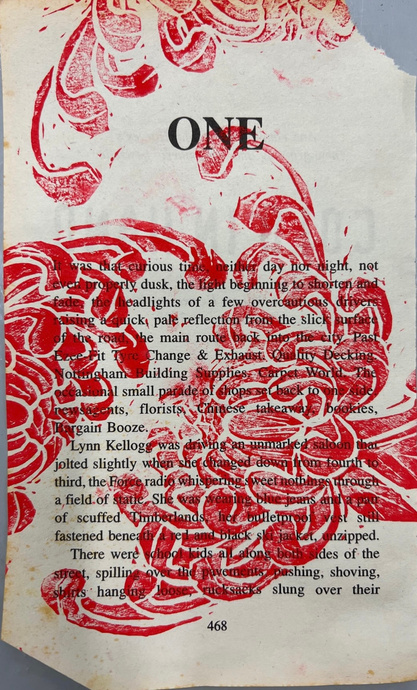 ONE
It was that curious time, neither day nor night, not
even properly dusk, the light beginning to shorten and
fade, the headlights of a few overcautious drivers
raising a quick, pale reflection from the slick surface
of the road, the main route back into the city. Past
Ezee-Fit Tyre Change & Exhaust, Quality Decking,
Nottingham Building Supplies, Carpet World. The
occasional small parade of shops set back to one side,
newsagents, florists, Chinese takeaway, bookies,
Bargain Booze.
Lynn Kellogg was driving an unmarked saloon that
jolted slightly when she changed down from fourth to
third, the Force radio whispering sweet nothings through
a field of static. She was wearing blue jeans and a pair
of scuffed Timberlands, her bulletproof vest still
fastened beneath a red and black ski jacket, unzipped.
There were school kids all along both sides of the
street, spilling over the pavements, pushing, shoving,
shirts hanging loose, rucksacks slung over their
468